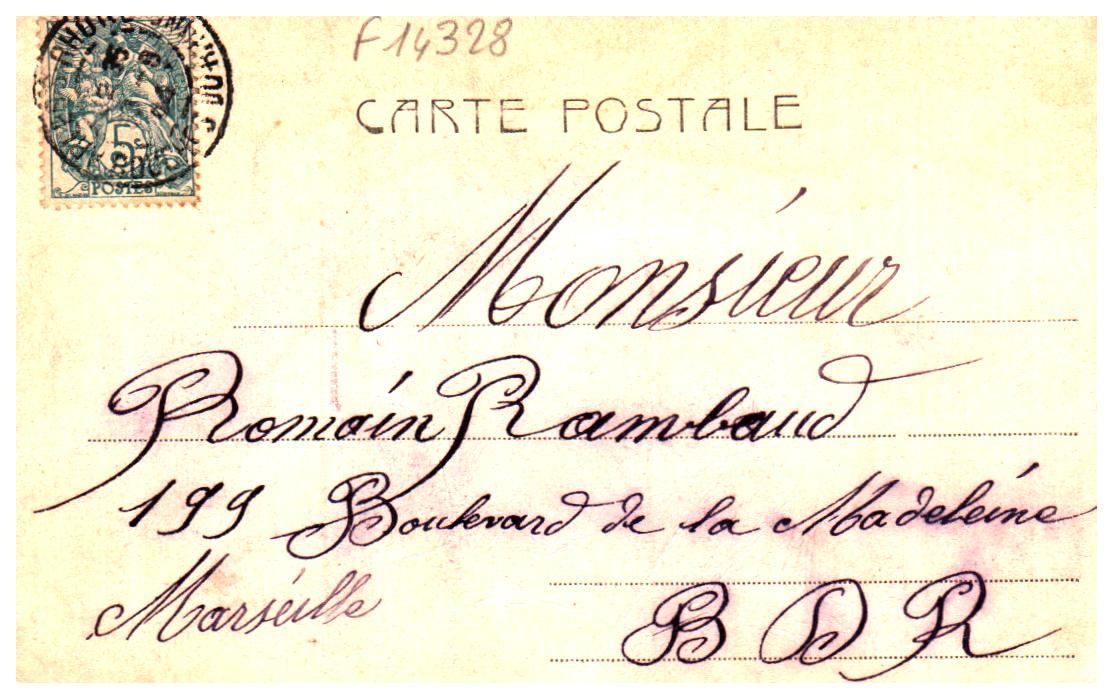 F14328
CARTE POSTALE
5c
POSTES
Monsieur
Romain Rambaud
199 Boulevard de la Madeleine
Marseille
B D R